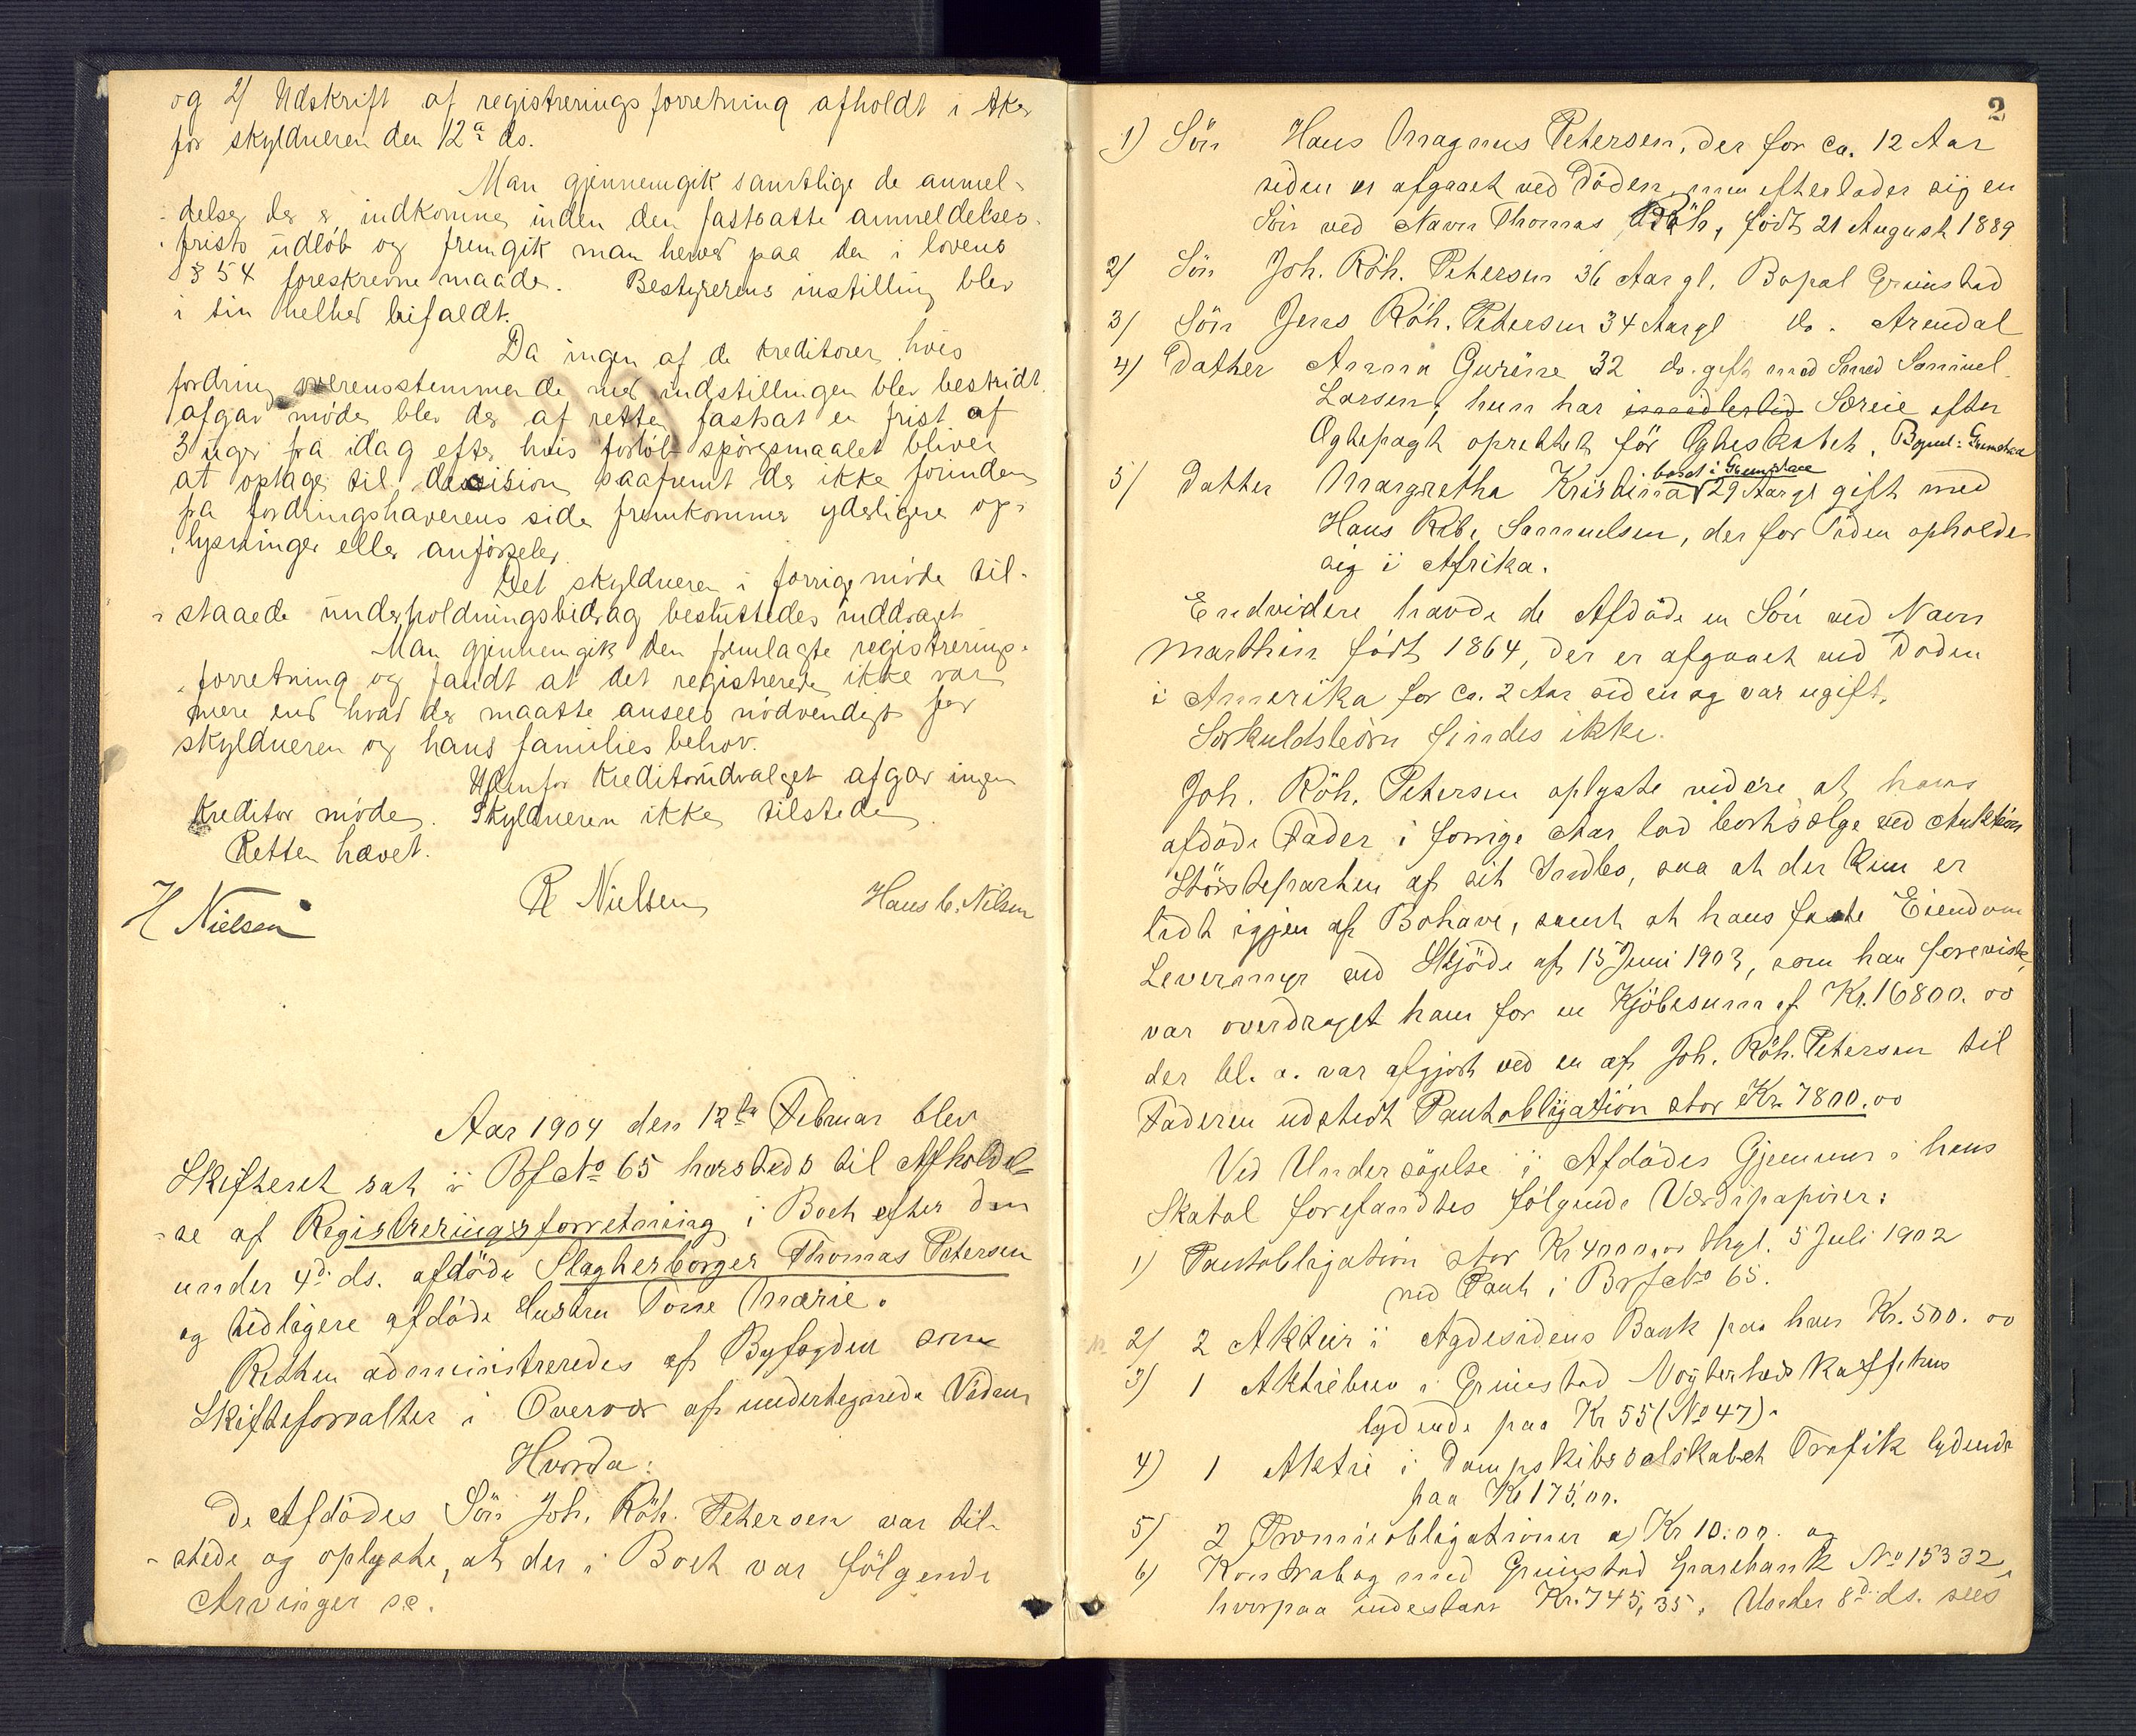 og 2/ Udskrift af registreringsforretning afholdt i Aker
for skyldneren den 12a ds.
Man gjennemgik samtlige de anmel-
delser der er indkomne inden den fastsatte anmeldelses-
frists udløb og fremgik man herved paa den i lovens
§ 54 foreskrevne maade. Bestyrerens instilling blev
i sin helhed bifaldt.
Da ingen af de kreditorer, hvis
fordring overensstemmende med indstillingen blev bestridt
afgav møde, blev der af retten fastsat en frist af
3 uger fra idag efter hvis forløb spørgsmaalet bliver
at optage til decision saafremt der ikke forinden
fra fordringshaverens side fremkommer yderligere op-
lysninger eller anførseler.
Det skyldneren i forrige møde til-
staaede underholdningsbidrag besluttedes inddraget
Man gjennemgik den fremlagte registrerings-
forretning og fandt at det registrerede ikke var
mere end hvad der maatte ansees nødvendigt for
skyldneren og hans families behov.
Udenfor kreditorudvalget afgav ingen
kreditor møde. Skyldneren ikke tilstede.
Retten hævet.
H Nielsen R Nielsen Hans C. Nilsen
Aar 1904 den 12te Februar blev
Skifteret sat i Bf No 65 hersteds til Afholdel-
se af Registreringsforretning i Boet efter den
under 4d. ds. afdöde Slagterborger Thomas Petersen
og tidligere afdöde Hustru Tone Marie.
Retten administreredes af Byfogden som
Skifteforvalter i Overvær af undertegnede Vidner
Hvorda:
De Afdödes Sön Joh. Röh. Petersen var til-
stede og oplyste, at der i Boet var fölgende
Arvinger se.
2
1) Sön Hans Magnus Petersen, der for ca. 12 Aar
siden er afgaaet ved Döden, men efterlader sig en
Sön ved Navn Thomas Röh, födt 21 August 1889
2) Sön Joh. Röh. Petersen 36 Aar gl. Bopæl Grimstad
3) Sön Jens Röh. Petersen 34 Aar gl do. Arendal
4) Datter Anna Gurine 32 do. gift med Smed Samuel
Larsen, hun har imidlertid Særeie efter
Ægtepagt oprettet för Ægteskabet. Bopæl: Grimstad
bosat i Grimstad
5) Datter Margretha Kristina 29 Aar gl gift med
Hans Rib. Samuelsen, der for Tiden opholder
sig i Afrika.
Endvidere havde de Afdöde en Sön ved Navn
Marthin födt 1864, der er afgaaet ved Döden
i Amerika for ca. 2 Aar siden og var ugift.
Særkuldsbörn findes ikke.
Joh. Röh. Petersen oplyste videre at hans
afdöde Fader i forrige Aar lod bortsælge ved Auktion
Störsteparten af sit Indbo, saa at der kun er
lidt igjen af Bohave, samt at hans faste Eiendom
Levermyr ved Skjöde af 15 Juni 1903, som han foreviste,
var overdraget ham for en Kjöbesum af Kr. 16800.00
der bl. a. var afgjort ved en af Joh. Röh. Petersen til
Faderen udstedt Pantobligation stor Kr. 7800.00
Ved Undersögelse i Afdödes Gjemmer i hans
Skatol forefandtes fölgende Værdipapirer:
1) Pantobligation stor Kr 4000,00 thgl. 5 Juli 1902
med Pant i Bf No 65.
2) 2 Aktier i Agdesidens Bank paa hver Kr. 500.00
3) 1 Aktiebrev i Grimstad Nögterheds Kaffehus
lydende paa Kr 55 (No 47).
4) 1 Aktie i Dampskibsselskabet Trafik lydende
paa Kr 175,00.
5) 2 Præmieobligationer a) Kr 10.00. og
6) Kontrabog med Grimstad Sparebank No 15332,
hvorpaa indestaar Kr. 745,35. Under 8d. ds. sees